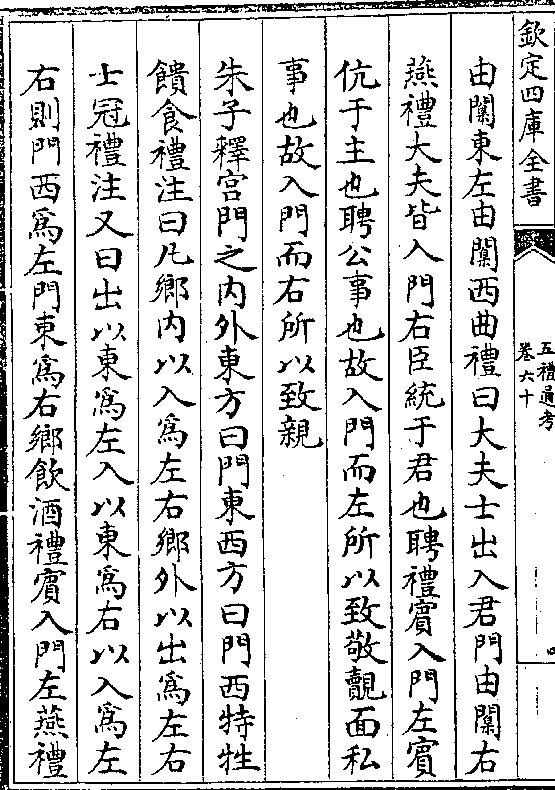 欽定四庫全書
五禮通考
卷六十
由闑東左由闑西曲禮曰大夫士出入君門由闑右
燕禮大夫皆入門右臣統于君也聘禮賓入門左賓
伉于主也聘公事也故入門而左所以致敬覿面私
事也故入門而右所以致親
朱子釋宫門之内外東方曰門東西方曰門西特牲
饋食禮注曰凡鄉内以入為左右鄉外以出為左右
士冠禮注又曰出以東為左入以東為右以入為左
右則門西為左門東為右鄉飲酒禮賓入門左燕禮